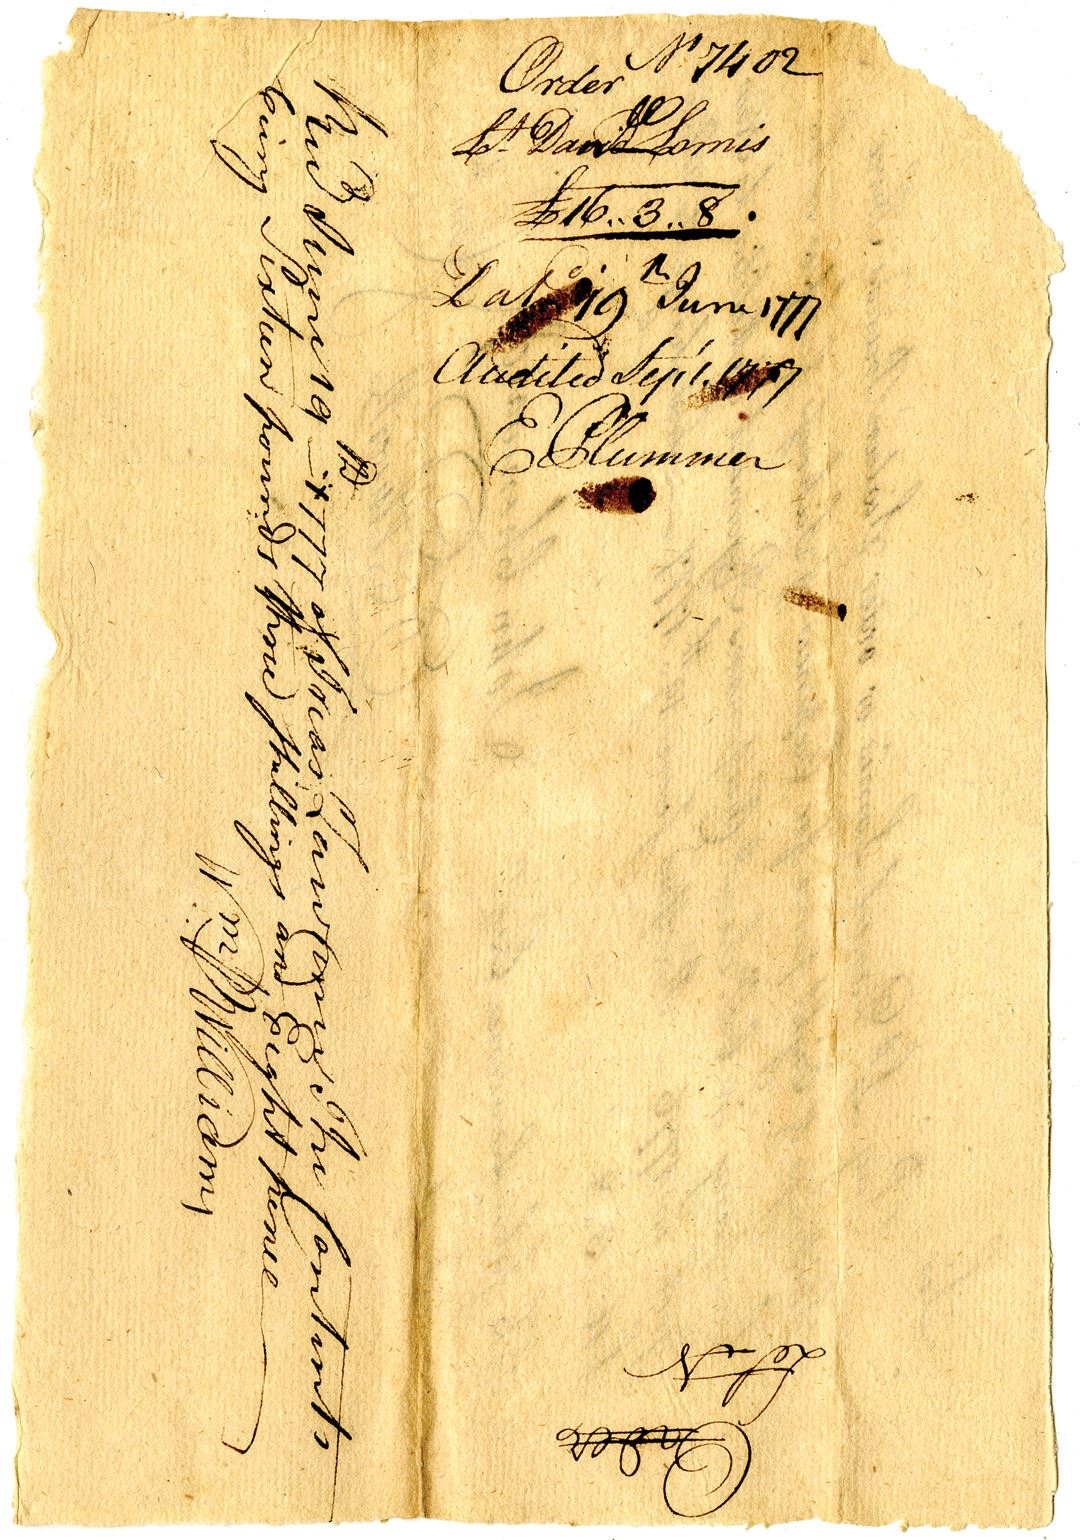 Order Nº 7402
Lt. David Lomis
£16..3..8.
Dat.d 19th June 1777
Audited Sepr 1. 1777
E Plummer
Recd June 19th 1777 of Treas.r Lawrence The Contents
being Sixteen pounds three shillings and Eight pence
Wm Williams
Order